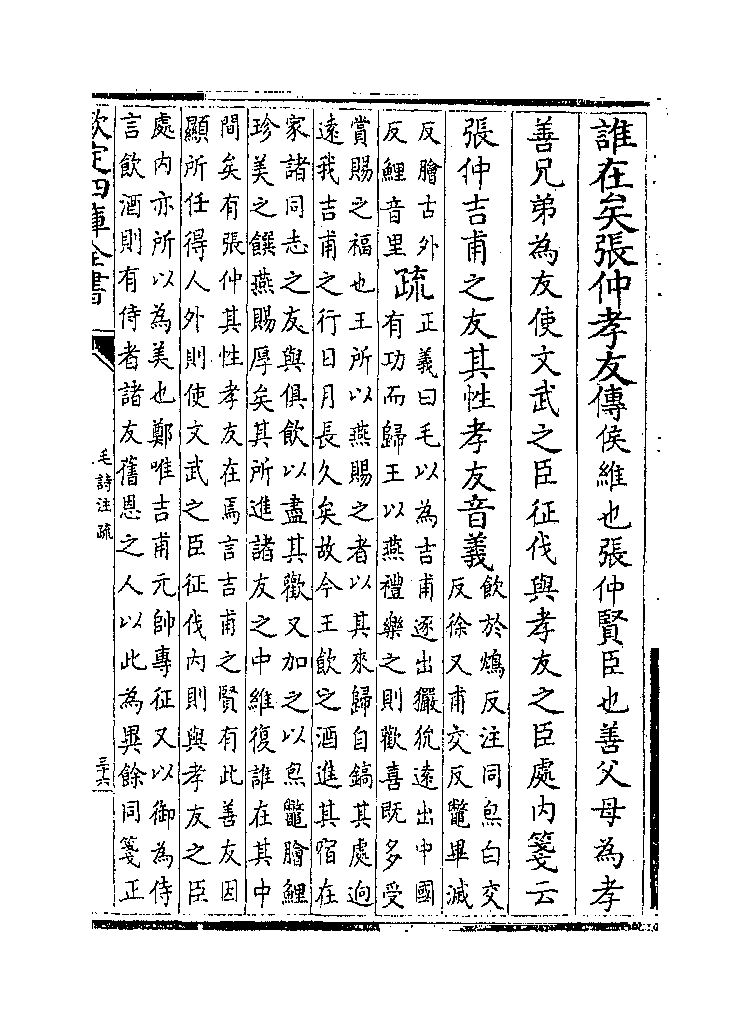 誰在矣張仲孝友傳侯維也張仲賢臣也善父母為孝
善兄弟為友使文武之臣征伐與孝友之臣處内箋云
張仲吉甫之友其性孝友音義
飲於鴆反注同炰白交
反徐又甫交反鼈畢滅
反膾古外
反鯉音里
疏
正義曰毛以為吉甫逐出玁狁遠出中國
有功而歸王以燕禮樂之則歡喜既多受
賞賜之福也王所以燕賜之者以其來歸自鎬其處迥
遠我吉甫之行日月長久矣故今王飲之酒進其宿在
家諸同志之友與俱飲以盡其歡又加之以炰鼈膾鯉
珍美之饌燕賜厚矣其所進諸友之中維復誰在其中
間矣有張仲其性孝友在焉言吉甫之賢有此善友因
顯所任得人外則使文武之臣征伐内則與孝友之臣
處内亦所以為美也鄭唯吉甫元帥專征又以御為侍
言飲酒則有侍者諸友舊恩之人以此為異餘同箋正
欽定四庫全書
毛詩注疏
三十六